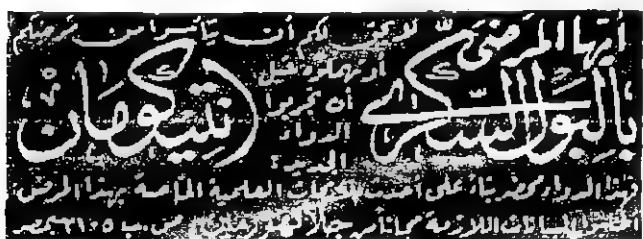 أيها المرضى
بالبول السكرى
لا يجب لكم أن تيأسوا من مرضكم
أو تهملوه قبل
أن تجربوا
الدواء
الجديد :
( انتيكومان )
هذا الدواء محضر بناء على أحدث الأبحاث العلمية الخاصة بهذا المرض
البيانات اللازمة مجانا من ص . ب ٢١٠٥ بمصر